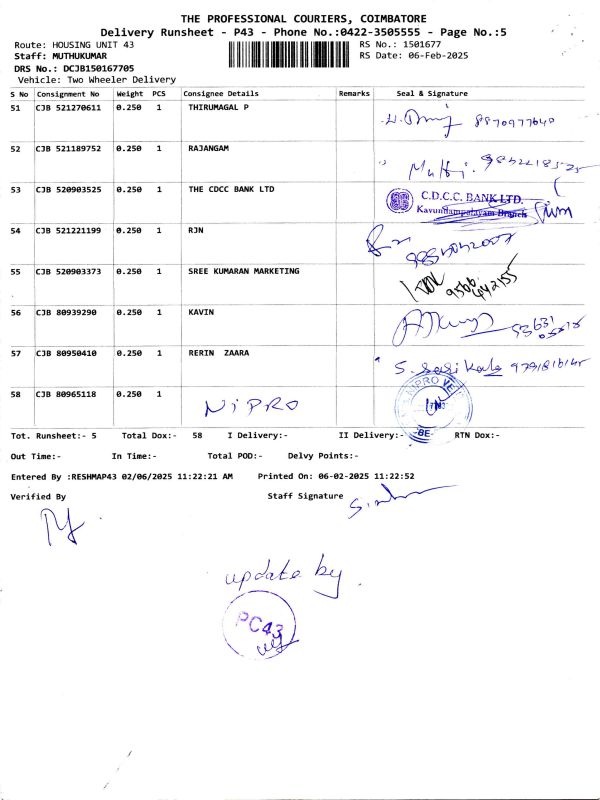 THE PROFESSIONAL COURIERS, COIMBATORE
Delivery Runsheet - P43 - Phone No.:0422-3505555 - Page No.:5
Route: HOUSING UNIT 43 RS No.: 1501677
Staff: MUTHUKUMAR RS Date: 06-Feb-2025
DRS No.: DCJB150167705
Vehicle: Two Wheeler Delivery
S No Consignment No Weight PCS Consignee Details Remarks Seal & Signature
51 CJB 521270611 0.250 1 THIRUMAGAL P 8870977640
52 CJB 521189752 0.250 1 RAJANGAM
53 CJB 520903525 0.250 1 THE CDCC BANK LTD C.D.C.C. BANK LTD.
Kavundampalayam Branch
54 CJB 521221199 0.250 1 RJN
55 CJB 520903373 0.250 1 SREE KUMARAN MARKETING
56 CJB 80939290 0.250 1 KAVIN
57 CJB 80950410 0.250 1 RERIN ZAARA S. Sasikala
58 CJB 80965118 0.250 1 NiPRO
Tot. Runsheet:- 5 Total Dox:- 58 I Delivery:- II Delivery:- RTN Dox:-
Out Time:- In Time:- Total POD:- Delvy Points:-
Entered By :RESHMAP43 02/06/2025 11:22:21 AM Printed On: 06-02-2025 11:22:52
Verified By Staff Signature
update by
PC43